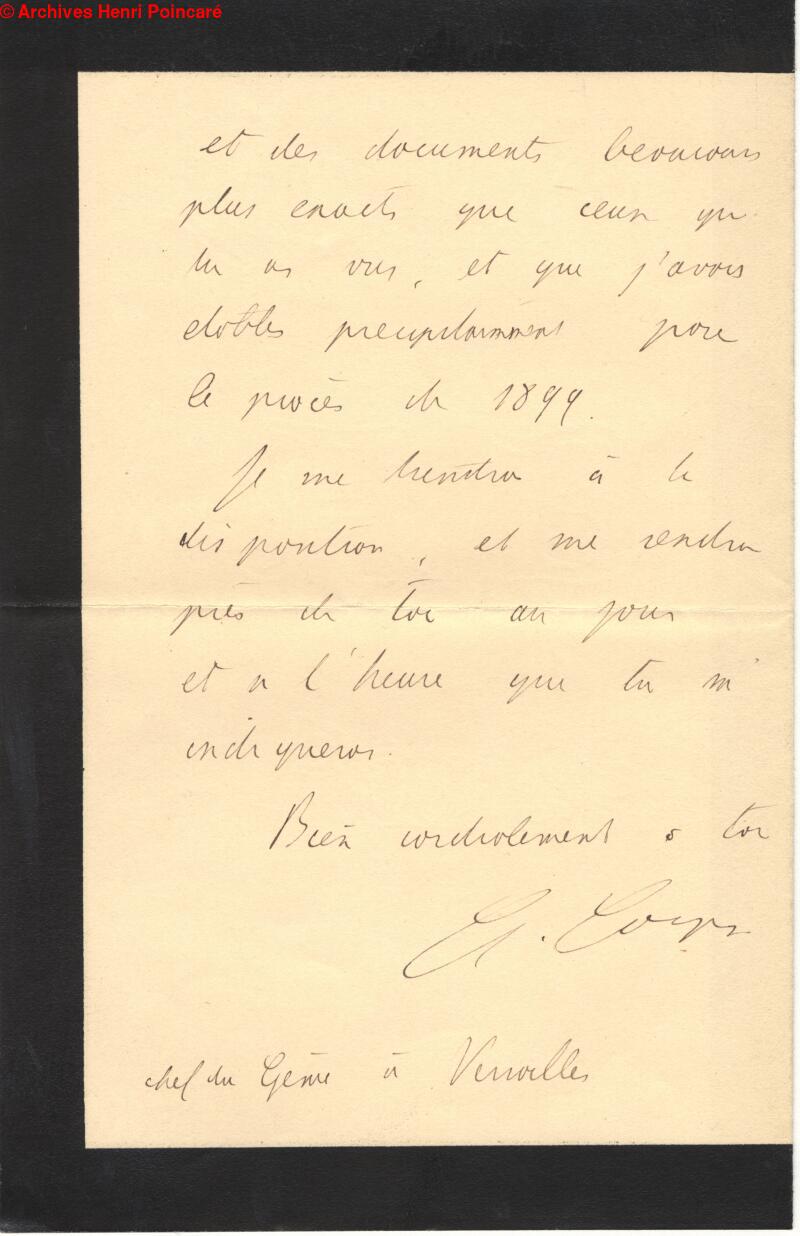 © Archives Henri Poincaré
et des documents beaucoup
plus exacts que ceux que
tu as vus, et que j'avais
établis précipitamment pour
le procès de 1899.
Je me tiendrai à ta
disposition, et me rendrai
près de toi au jour
et à l'heure que tu m'
indiqueras.
Bien cordialement à toi
G. Corps
chef du Génie à Versailles